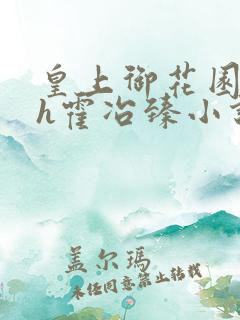 皇上御花园
h霍冶臻小
盖尔玛
未经同意禁止转载